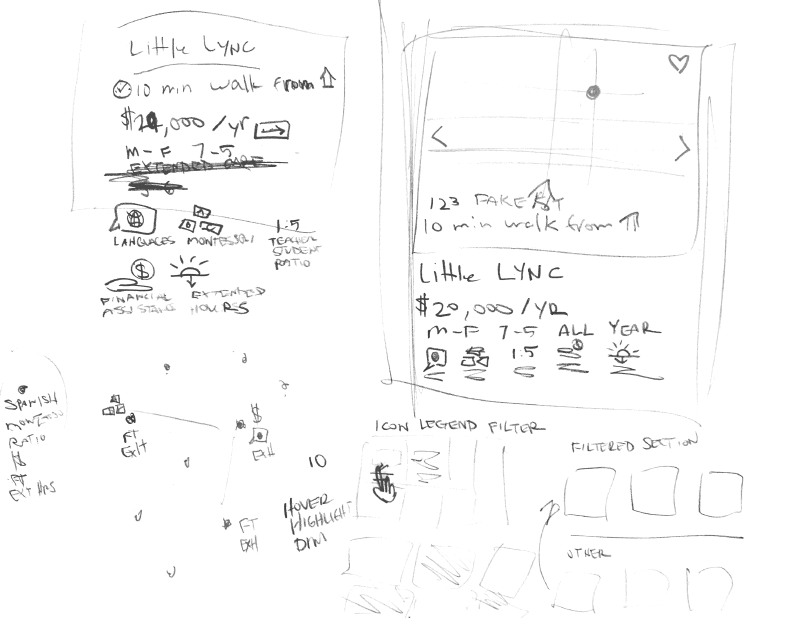 Little LYNC
10 min walk from
$20,000 /yr
M-F 7-5
EXTENDED CARE
LANGUAGES
MONTESSORI
1:5
TEACHER
STUDENT
RATIO
FINANCIAL
ASSISTANCE
EXTENDED
HOURS
123 FAKE ST
10 min walk from
Little LYNC
$20,000/YR
M-F 7-5 ALL YEAR
1:5
SPANISH
RATIO
FT
EXT HRS
FT
ExH
$
ExH
FT
ExH
10
HOVER
HIGHLIGHT
DIM
ICON LEGEND FILTER
FILTERED SECTION
OTHER